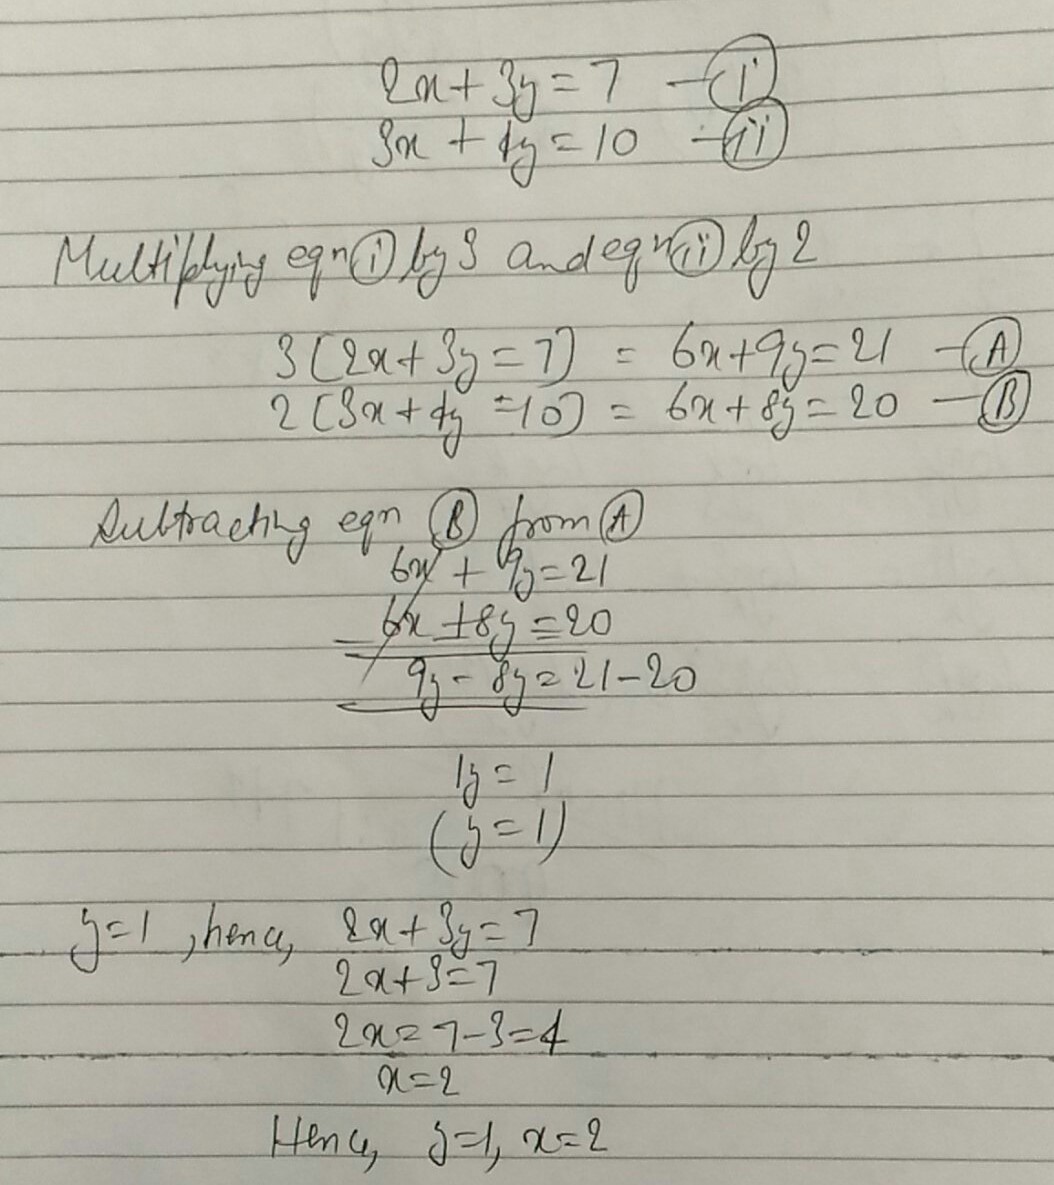 2x + 3y = 7 - (i)
3x + 4y = 10 - (ii)
Multiplying eqn (i) by 3 and eqn (ii) by 2
3(2x + 3y = 7) = 6x + 9y = 21 - (A)
2(3x + 4y = 10) = 6x + 8y = 20 - (B)
Subtracting eqn (B) from (A)
6x + 9y = 21
6x + 8y = 20
9y - 8y = 21 - 20
1y = 1
(y = 1)
y = 1, hence, 2x + 3y = 7
2x + 3 = 7
2x = 7 - 3 = 4
x = 2
Hence, y = 1, x = 2